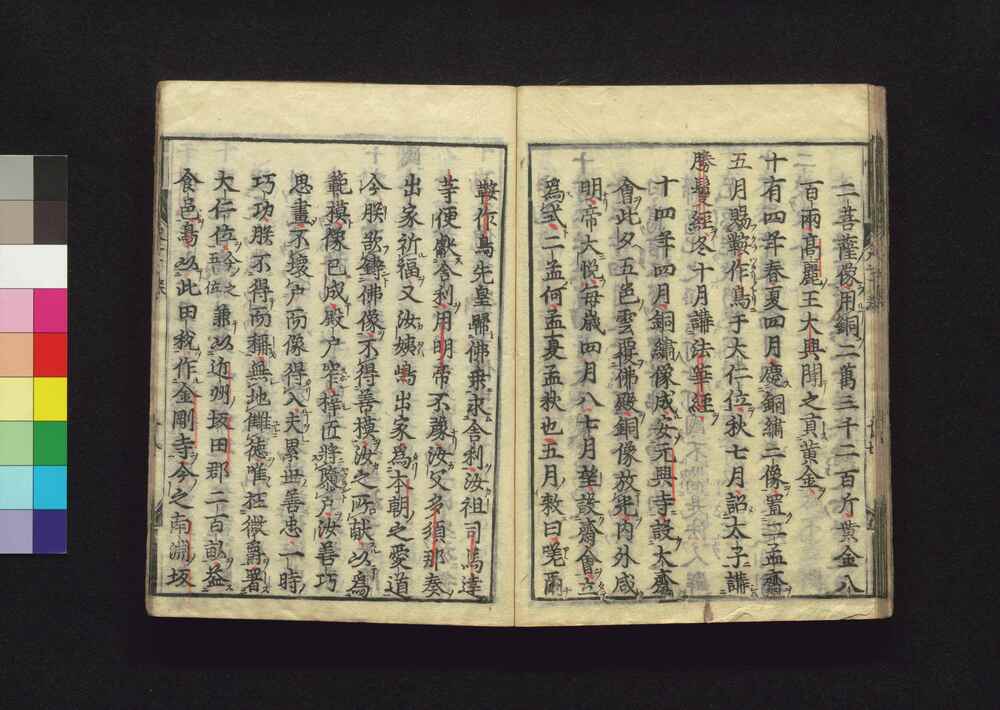 二菩薩像用銅二萬三千二百斤黄金八
百兩高麗王大興聞之貢黄金
十有四年春夏四月慶銅繡二像置二孟齋
五月賜鞍作鳥于大仁位秋七月詔太子講
勝鬘經冬十月講法華經
十四年四月銅繡像成安元興寺設大齋
會此夕五色雲覆佛殿銅像放光内外咸
明帝大悦毎歳四月八七月望設齋會立
爲式二孟何孟夏孟秋也五月敕曰嗟爾
鞍作鳥先皇歸佛乘求舎利汝祖司馬達
等便獻舎利用明帝不豫汝父多須那奏
出家祈福又汝姨嶋出家爲本朝之愛道
今朕欲鑄佛像不得善模汝之所献以爲
範模像已成殿户窄梓匠將隳户汝善巧
思畫不壊户而像得入夫累世善忠一時
巧功朕不得而稱無地讎徳唯在微爵署
大仁位今之五位兼以近州坂田郡二百畝益
食邑鳥以此田税作金剛寺今之南淵坂